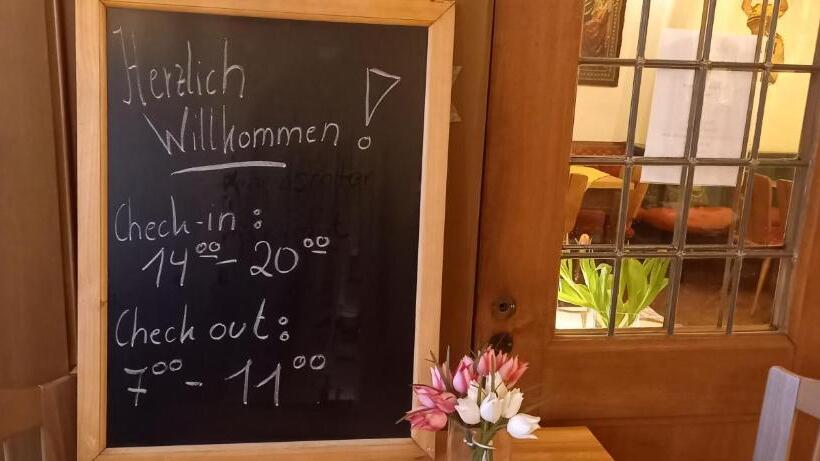 Herzlich
Willkommen!
Check-in:
14⁰⁰ - 20⁰⁰
Check out:
7⁰⁰ - 11⁰⁰